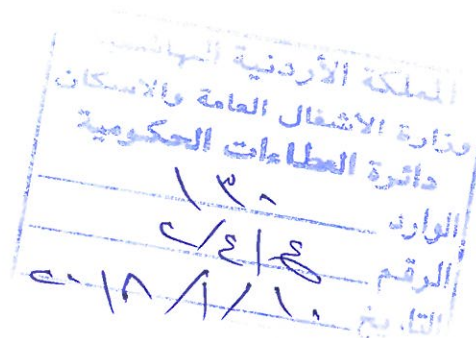 المملكة الأردنية الهاشمية
وزارة الاشغال العامة والاسكان
دائرة العطاءات الحكومية
الوارد ١٣٠
الرقم
التاريخ ٢٠١٨/١/١٠